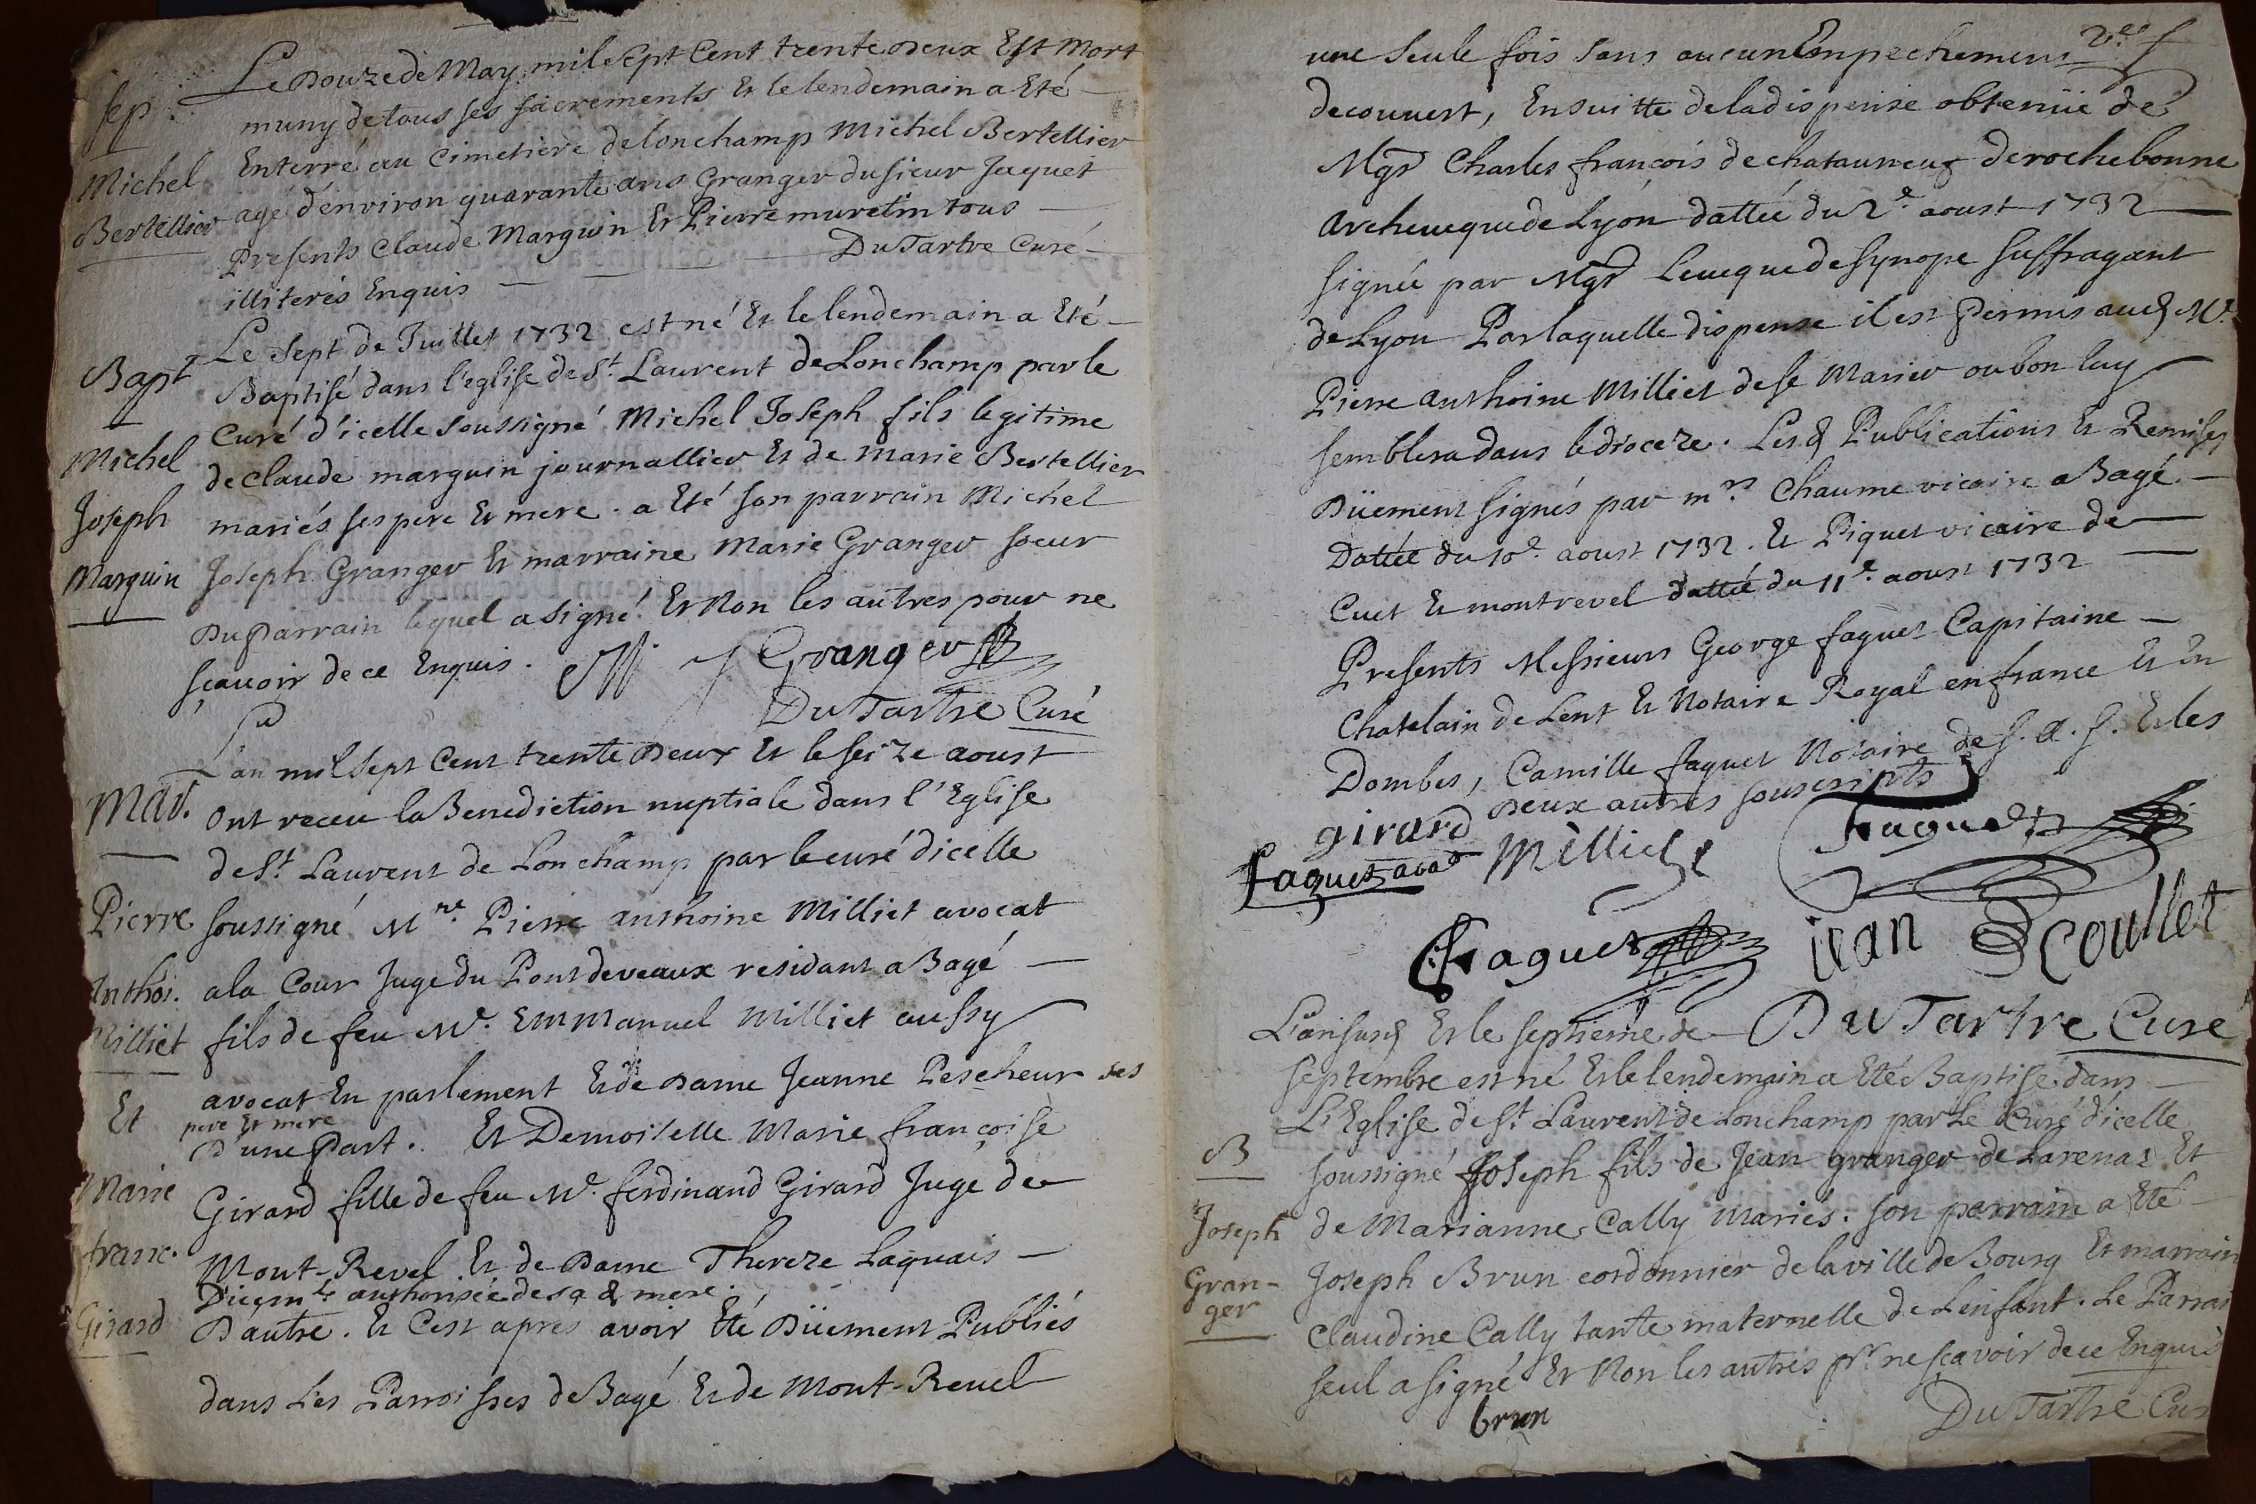 Le Douze de May mil sept Cent trente Deux Est Mort
muny de tous ses sacrements Et le lendemain a Eté
Enterré au cimetiere de lonchamp Michel Bertellier
agé d'environ quarante ans Granger du sieur Jaquet
Presents Claude Marguin Et Pierre muretin tous
illiterés Enquis
DuTartre Curé
sep
Michel
Bertellier
Le Sept de Juillet 1732 est né Et le lendemain a Eté
Baptisé dans l'eglise de St Laurent de Lonchamp par le
Curé d'icelle soussigné Michel Joseph fils legitime
de Claude marguin journallier Et de Marie Bertellier
mariés ses pere Et mere. a Eté son parrain Michel
Joseph Granger Et marraine Marie Granger soeur
Du Parrain lequel a signé Et Non les autres pour ne
sçavoir de ce Enquis. M. J Granger
DuTartre Curé
Bapt
Michel
Joseph
Marguin
L'an mil sept Cent trente Deux Et le seize aoust
ont receu la Benediction nuptiale dans l'Eglise
de St Laurent de Lonchamp par le curé dicelle
soussigné Mre Pierre anthoine Milliet avocat
a la Cour Juge du Pontdeveaux residant a Bagé
fils de feu Me. Emmanuel Milliet aussy
avocat En parlement Et de Dame Jeanne Pescheur ses
pere Et mere
D'une Part. Et Demoiselle Marie françoise
Girard fille de feu Me. ferdinand Girard Juge de
Mont-Revel Et de Dame Thereze Laquais
authorisée de sa d mere
D'autre. Et C'est apres avoir Eté Düement Publiés
dans Les Parroisses de Bagé Et de Mont-Revel
Mar.
Pierre
Anthoi.
Milliet
Et
Marie
franc.
Girard
une Seule fois sans aucun Empechement
decouvert, Ensuitte de la dispense obtenüe de
Mgr Charles françois de chatauneuf de rochebonne
Archeveque de Lyon dattée du 2e. aoust 1732
signée par Mgr Leveque de Synope suffragant
de Lyon Par laquelle dispense il est permis aud Me.
Pierre anthoine Milliet de se Marier ou bon luy
semblera dans le dioceze. Lesd Publications Et Remises
Düement signés par mrs Chaume vicaire a Bagé
Dattée du 10e aoust 1732. Et Piquet vicaire de
Cuet Et montrevel dattée du 11e. aoust 1732
Presents Messieurs George faguet Capitaine
Chatelain de Lent Et Notaire Royal en france Et En
Dombes, Camille faguet Notaire de S. A. S. Et les
Deux autres souscripts
girard
Milliet
Faguet
Faguet avat
Faguet
jean Ecoullet
DuTartre Curé
L'an susd Et le septieme de
septembre est né Et le lendemain a Eté Baptisé dans
L'Eglise de St Laurent de Lonchamp par Le Curé d'icelle
soussigné Joseph fils de Jean granger de Larenas Et
de Marianne Cally Mariés. son parrain a Eté
Joseph Brun cordonnier de la ville de Bourg Et marrain
Claudine Cally tante maternelle de L'enfant. Le Parrai
seul a signé Et Non les autres pr ne sçavoir de ce Enquis
brun
DuTartre Cur
B
Joseph
Gran-
ger